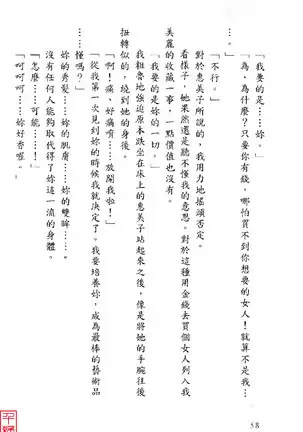 「我要的是……妳。」
「為、為什麼？只要你有錢，哪怕買不到你想要的女人！就算不是我…
…。」
「不行。」
對於惠美子所說的，我用力地搖頭否定。
看樣子，她果然還是聽不懂我的意思。對於這種用金錢去買個女人列入我
美麗的收藏一事，一點價值也沒有。
「我要的是妳的一切。」
我粗魯地強迫原本跌坐在床上的惠美子站起來之後，像是將她的手腕往後
扭轉似的，繞到她的身後。
「啊！痛、好痛唷……放開我啦！」
「從我第一次見到妳的時候我就決定了。我要培養妳，成為最棒的藝術品
……懂嗎？」
妳的秀髮……妳的肌膚……妳的雙眸……
沒有任何人能夠取代得了妳這一流的身體。
「怎麼……可能……！」
「呵呵呵……妳好香喔。」
58